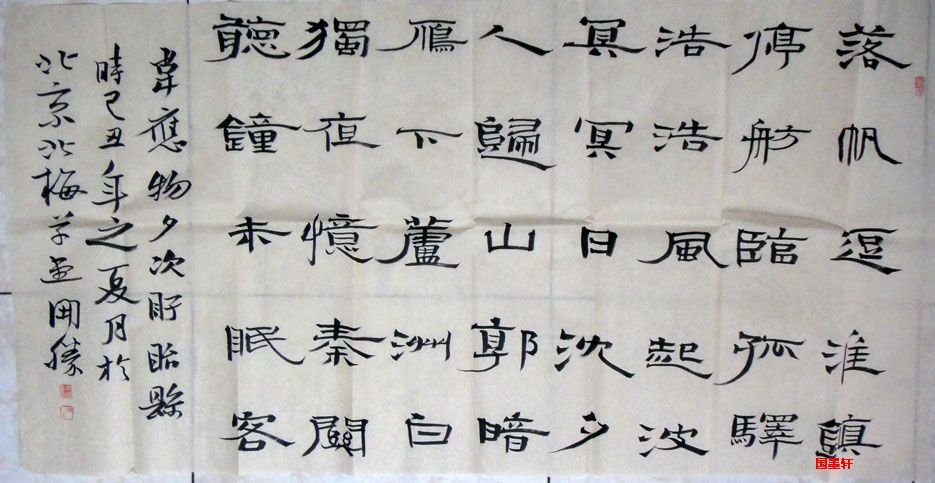 落帆逗淮鎮
停舫臨孤驛
浩浩風起波
冥冥日沈夕
人歸山郭暗
鴈下蘆洲白
獨夜憶秦關
聽鐘未眠客
韋應物夕次盱眙縣
時己丑年之夏月於
北京北梅
国墨轩